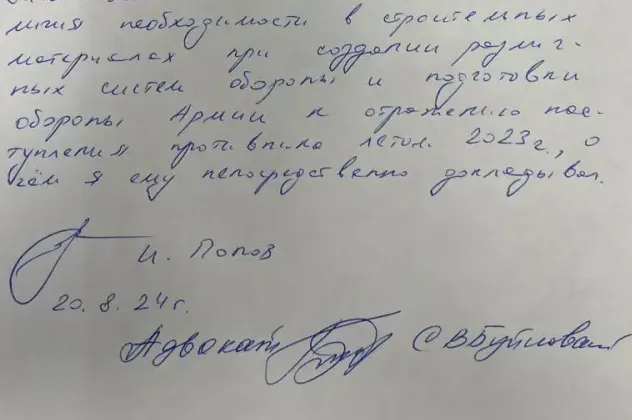 мния необходимости в строительных
материалах при создании различ-
ных систем обороны и подготовки
обороны Армии к отражению нас-
тупления противника летом 2023 г., о
чём я ему непосредственно докладывал.
И. Попов
20.8.24 г.
Адвокат С В Бу